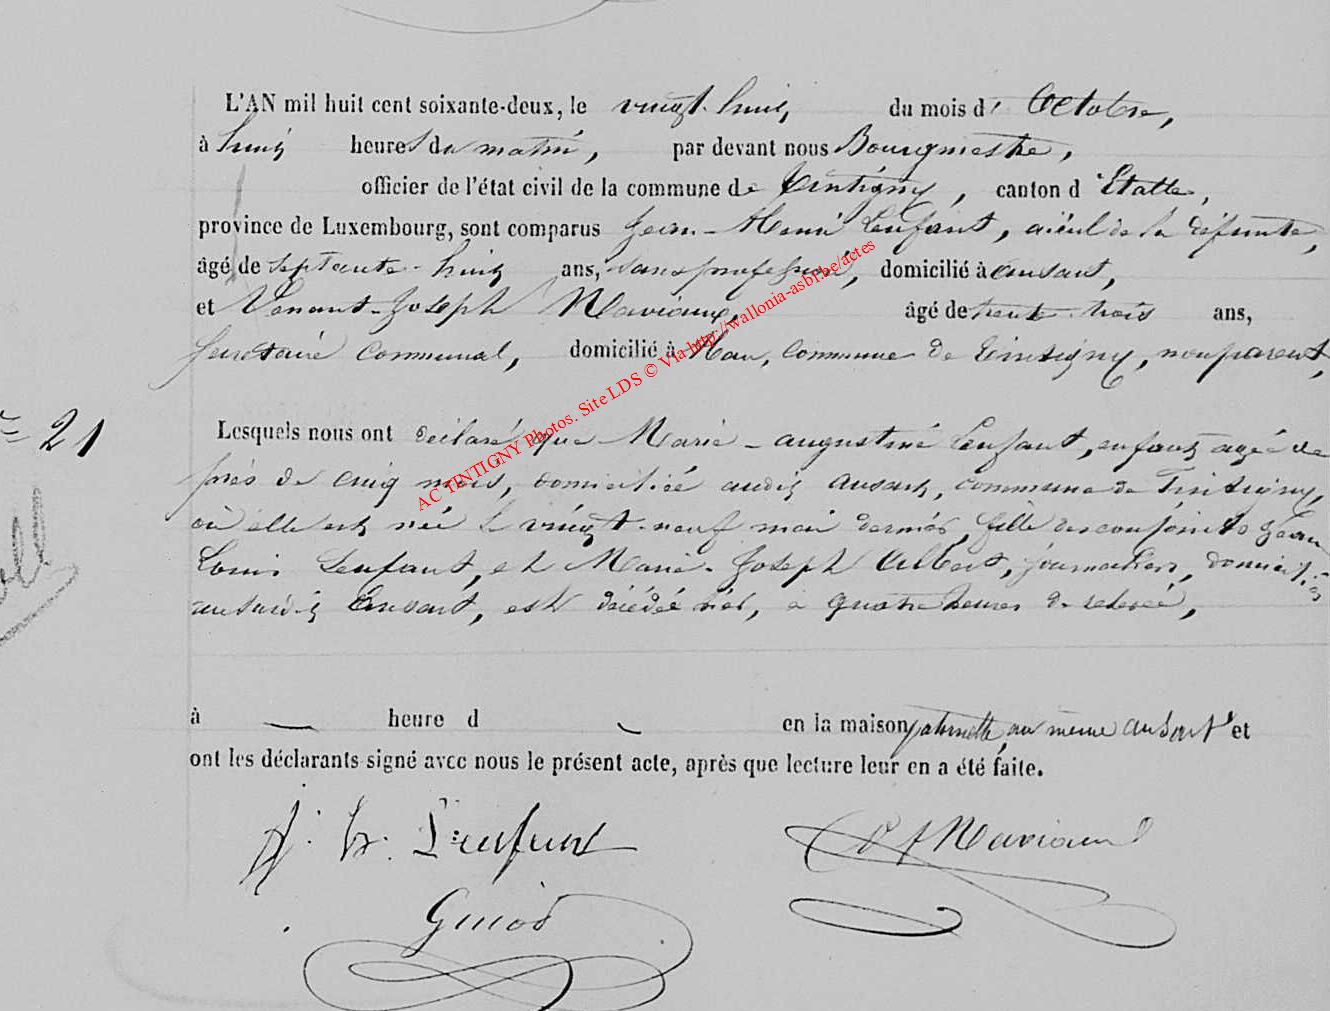 L'AN mil huit cent soixante-deux, le vingt-huit du mois d'Octobre,
à huit heures du matin, par devant nous Bourgmestre,
officier de l'état civil de la commune de Tintigny, canton d'Etalle,
province de Luxembourg, sont comparus Jean-Henri Lenfant, aïeul de la défunte,
âgé de septante-huit ans, sans profession, domicilié à Ansart,
et Venant-Joseph Maviaux, âgé de trente-trois ans,
Secrétaire Communal, domicilié à Han, Commune de Tintigny, non parent,
N° 21
Lesquels nous ont déclaré que Marie-augustine Lenfant, enfant agée de
près de cinq mois, domiciliée audit Ansart, commune de Tintigny,
où elle est née le vingt-neuf mai dernier, fille des conjoints Jean
Louis Lenfant, et Marie-Joseph Albert, journaliers, domiciliés
au susdit Ansart, est décédée hier, à quatre heures de relevée,
à — heure d — en la maison paternelle, au même Ansart et
ont les déclarants signé avec nous le présent acte, après que lecture leur en a été faite.
J. h. Lenfant
V J Maviaux
Guiod
AC TINTIGNY Photos. Site LDS © Via http://wallonia-asbl.be/actes